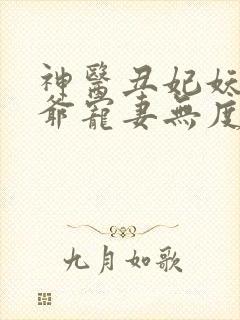 神醫丑妃妖
爺寵妻無度
九月如歌